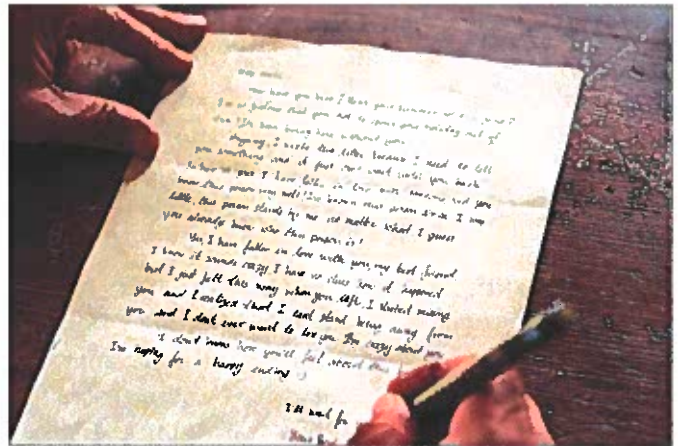 How have you been? I hope your
I'm so jealous that you get to spend your holiday out of
I've been boring here without you.
Anyway, I write this letter because I need to tell
you something and it just can't wait until you back.
is, I have fallen in love with someone and you
know this person very well. I've known this person since I was
little, this person stands by me no matter what. I guess
you already know who this person is!
Yes, I have fallen in love with you, my best friend.
I know it sounds crazy, I have no clue how it happened
but I just felt this way when you left. I started missing
you and I realized that I can't stand being away from
you and I don't ever want to lose you. I'm crazy about you
I don't know how you'll feel about this
I'm hoping for a happy ending
I'll wait for